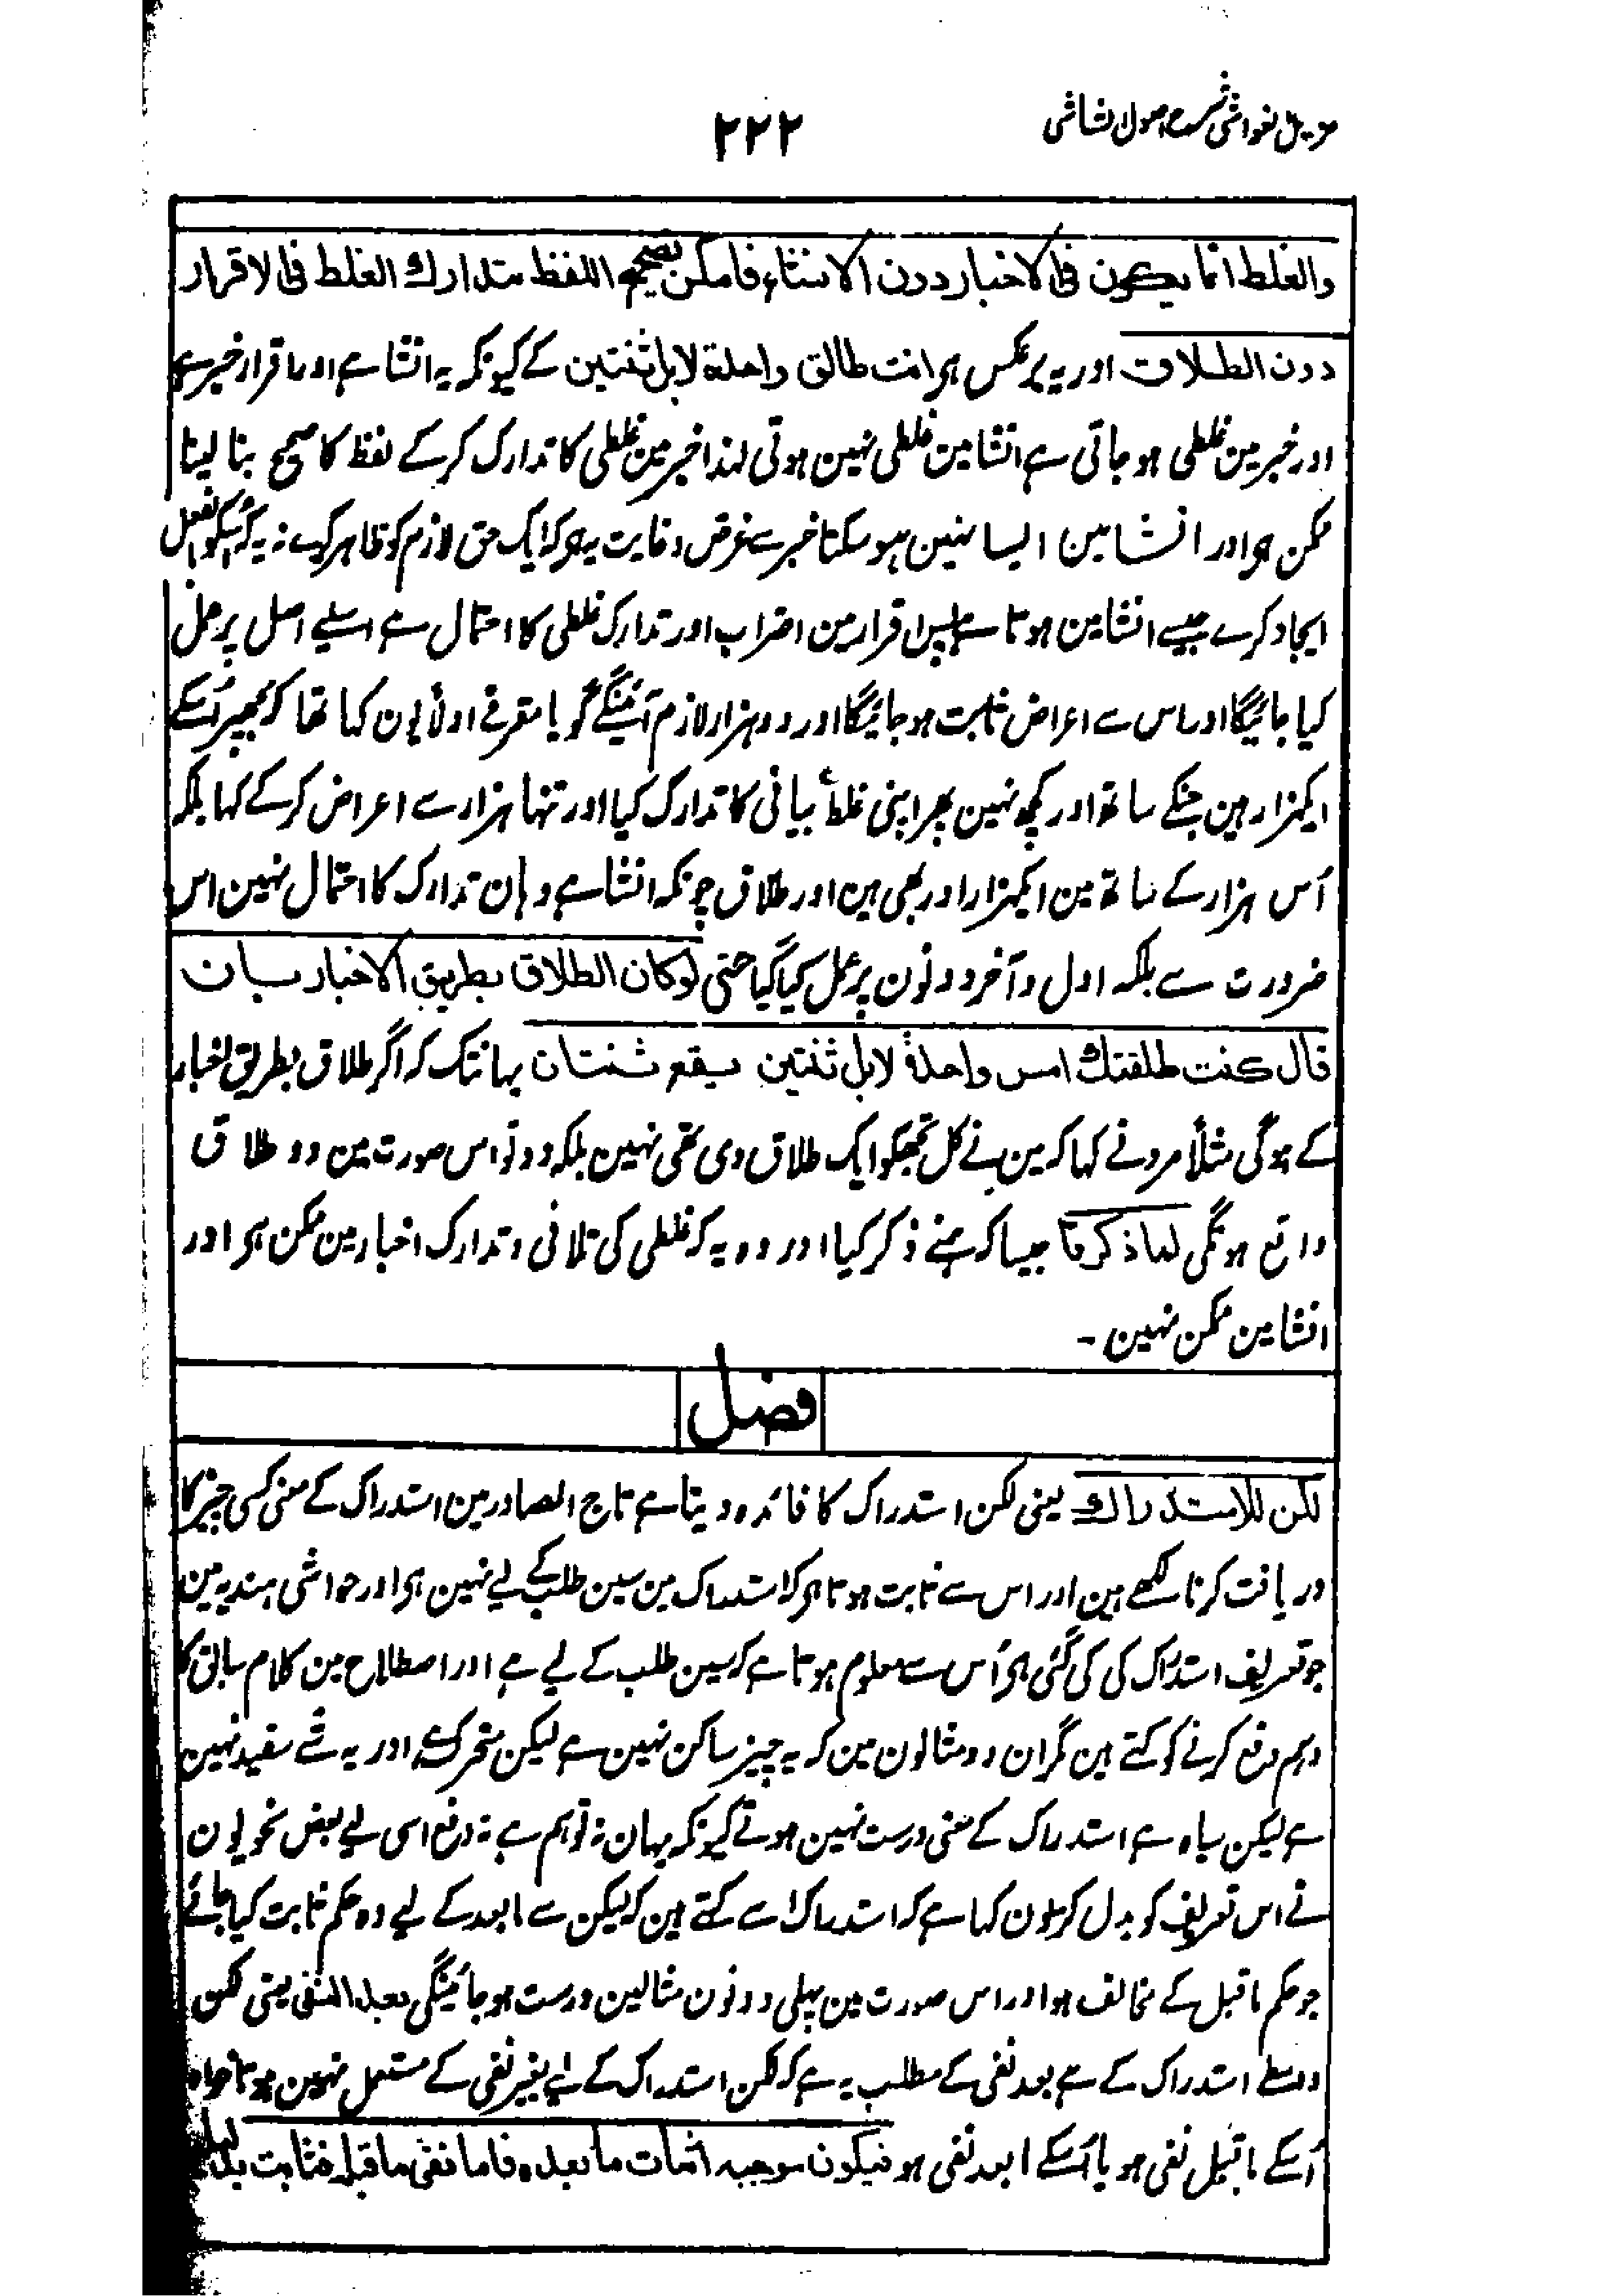 مزیل الغواشی شرح اصول الشاشی
۲۲۲
والغلط انما يكون فی الاخبار دون الانشاء فامكن تصحيح اللفظ بتدارك الغلط فی الاقرار
دون الطلاق اور یہ برعکس ہی انت طالق واحدة لابل ثنتین کے کیونکہ یہ انشا ہے اور اقرار خبر ہے
اور خبر مین غلطی ہو جاتی ہے انشا مین غلطی نہین ہوتی لہذا خبر مین غلطی کا تدارک کر کے لفظ کا صحیح بنا لینا
ممکن ہی اور انشا مین ایسا نہین ہو سکتا خبر سے غرض و غایت یہ ہی کہ ایک حق لازم کو ظاہر کرے نہ یہ کہ اُسکو بالفعل
ایجاد کرے جیسے انشا مین ہوتا ہے پس اقرار مین اضراب اور تدارک غلطی کا احتمال ہے اسلیے اصل پر عمل
کیا جائیگا اور اس سے اعراض ثابت ہو جائیگا اور دو ہزار لازم آئینگے گویا مقر نے اولاً یون کہا تھا کہ مجھپر اُسکے
ایکہزار ہین جنکے ساتھ اور کچھ نہین پھر اپنی غلط بیانی کا تدارک کیا اور تنہا ہزار سے اعراض کر کے کہا بلکہ
اُس ہزار کے ساتھ مین ایکہزار اور بھی ہین اور طلاق چونکہ انشا ہے وہان تدارک کا احتمال نہین اس
ضرورت سے بلکہ اول و آخر دونون پر عمل کیا گیا حتی لوكان الطلاق بطريق الاخبار بان
قال كنت طلقتك امس واحدة لابل ثنتين يقع ثنتان یہانتک کہ اگر طلاق بطریق اخبار
کے ہوگی مثلاً مرد نے کہا کہ مین نے کل تجھکو ایک طلاق دی تھی نہین بلکہ دو تو اس صورت مین دو طلاق
واقع ہونگی لما ذكرنا جیسا کہ ہمنے ذکر کیا اور وہ یہ کہ غلطی کی تلافی و تدارک اخبار مین ممکن ہی اور
انشا مین ممکن نہین ۔
فصل
لكن للاستدراك یعنی لکن استدراک کا فائدہ دیتا ہے تاج المصادر مین استدراک کے معنی کسی چیز کا
دریافت کرنا لکھے ہین اور اس سے ثابت ہوتا ہی کہ استدراک مین سین طلب کے لیے نہین ہی اور حواشی ہندیہ مین
جو تعریف استدراک کی کی گئی ہی اُس سے معلوم ہوتا ہے کہ سین طلب کے لیے ہے اور اصطلاح مین کلام سابق کا
وہم دفع کرنے کو کہتے ہین مگر ان دو مثالون مین کہ یہ چیز ساکن نہین ہے لیکن متحرک ہے اور یہ شے سفید نہین
ہے لیکن سیاہ ہے استدراک کے معنی درست نہین ہوتے کیونکہ یہان نہ توہم ہے نہ دفع اسی لیے بعض نحویون
نے اس تعریف کو بدل کر یون کہا ہے کہ استدراک اسے کہتے ہین کہ لیکن سے مابعد کے لیے وہ حکم ثابت کیا جائے
جو حکم ماقبل کے مخالف ہو اور اس صورت مین پہلی دونون مثالین درست ہو جائینگی بعد النفی یعنی لکن
واسطے استدراک کے ہے بعد نفی کے مطلب یہ ہے کہ لکن استدراک کے لیے بغیر نفی کے مستعمل نہین ہوتا خواہ
اُسکے ماقبل نفی ہو یا اُسکے مابعد نفی ہو فيكون موجبه اثبات ما بعده فاما نفی ما قبله فثابت بدليله